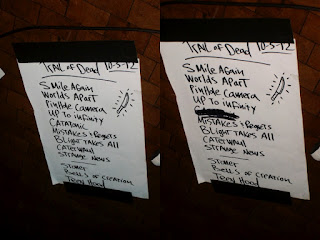 Trail of Dead 10-5-12
Smile Again
Worlds Apart
Pinhole Camera
UP TO infinity
Catatonic
Mistakes & Regrets
Blight Takes All
Caterwaul
Strange News
Stoner
Bells of Creation
Trail of Dead 10-5-12
Smile Again
Worlds Apart
Pinhole Camera
UP TO infinity
Mistakes & Regrets
Blight Takes All
Caterwaul
Strange News
Stoner
Bells of Creation